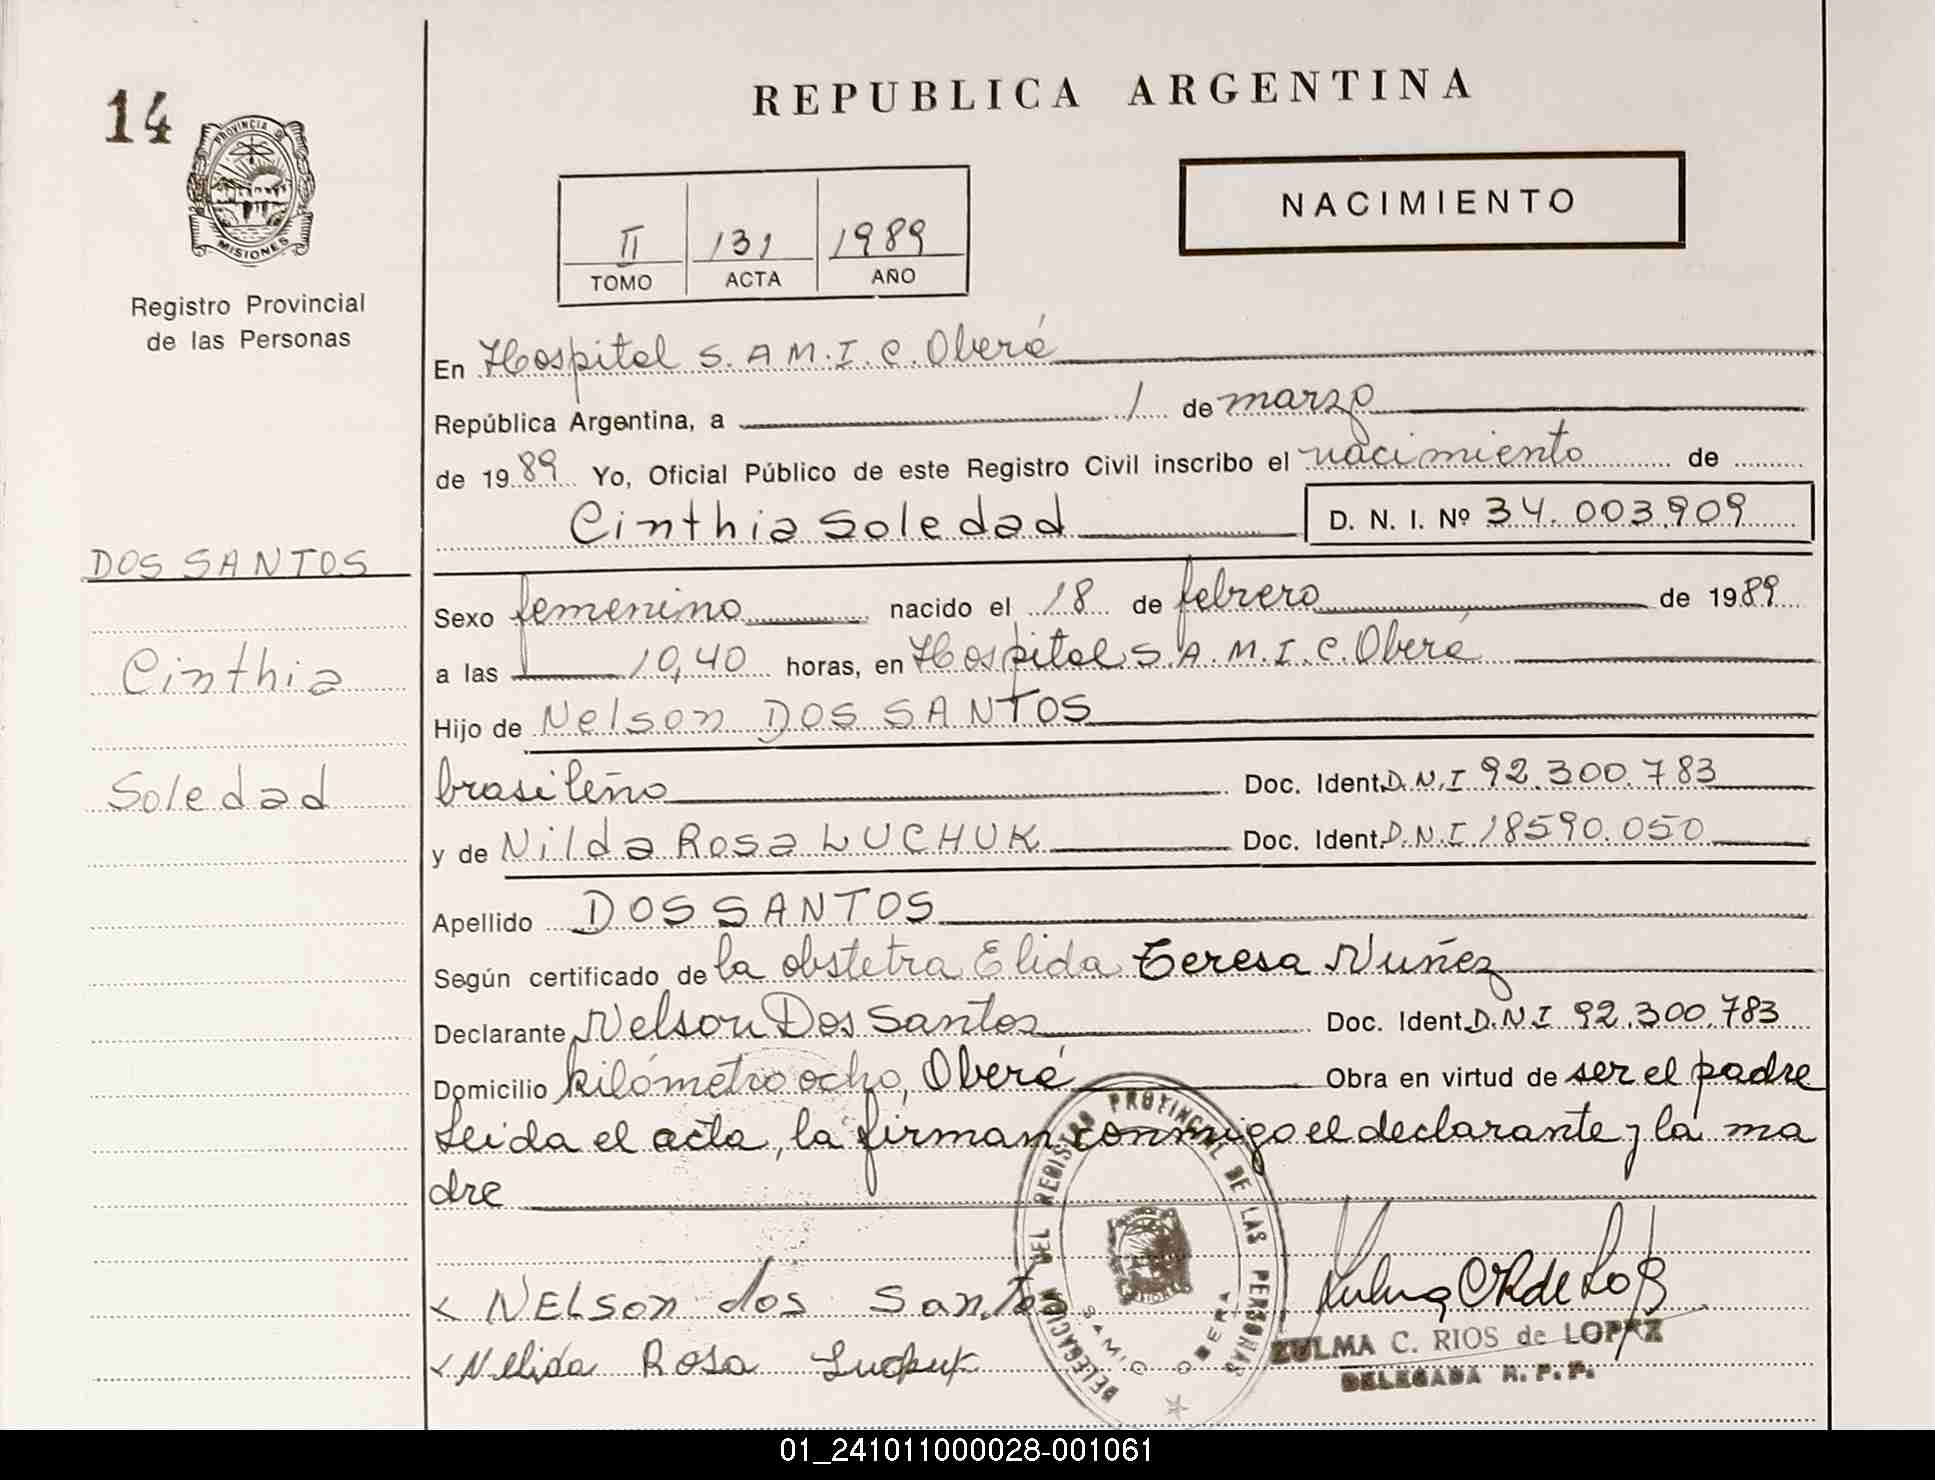 14
REPUBLICA ARGENTINA
PROVINCIA DE
MISIONES
NACIMIENTO
II 131 1989
TOMO ACTA AÑO
Registro Provincial
de las Personas
En Hospital S.A.M.I.C. Oberá
República Argentina, a 1 de marzo
de 1989 Yo, Oficial Público de este Registro Civil inscribo el nacimiento de
Cinthia Soledad D. N. I. Nº 34.003.909
DOS SANTOS
Cinthia
Soledad
Sexo femenino nacido el 18 de febrero de 1989
a las 10,40 horas, en Hospital S.A.M.I.C. Oberá
Hijo de Nelson DOS SANTOS
brasileño Doc. Ident. D.N.I 92.300.783
y de Nilda Rosa LUCHUK Doc. Ident. D.N.I 18590.050
Apellido DOS SANTOS
Según certificado de la obstetra Elida Teresa Nuñez
Declarante Nelson Dos Santos Doc. Ident. D.N.I 92.300.783
Domicilio kilómetro ocho, Oberá Obra en virtud de ser el padre
Leida el acta, la firman conmigo el declarante y la ma
dre
NELSon dos Santos
Nelida Rosa Luchuk
DELEGACION DEL REGISTRO PROVINCIAL DE LAS PERSONAS
SAMIC OBERA
ZULMA C. RIOS de LOPEZ
DELEGADA R. P. P.
01_241011000028-001061